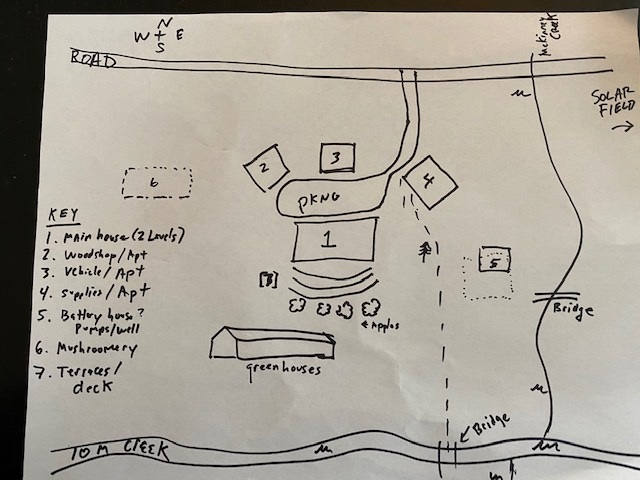 N
W E
S
McKinney Creek
ROAD
SOLAR
FIELD
2
3
4
6
PKNG
1
5
KEY
1. Main house (2 Levels)
2. Woodshop/Apt
3. Vehicle/Apt
4. Supplies/Apt
5. Battery house?
Pumps/well
6. Mushroomery
7. Terraces/
deck
Apples
Bridge
greenhouses
Bridge
TOM CREEK